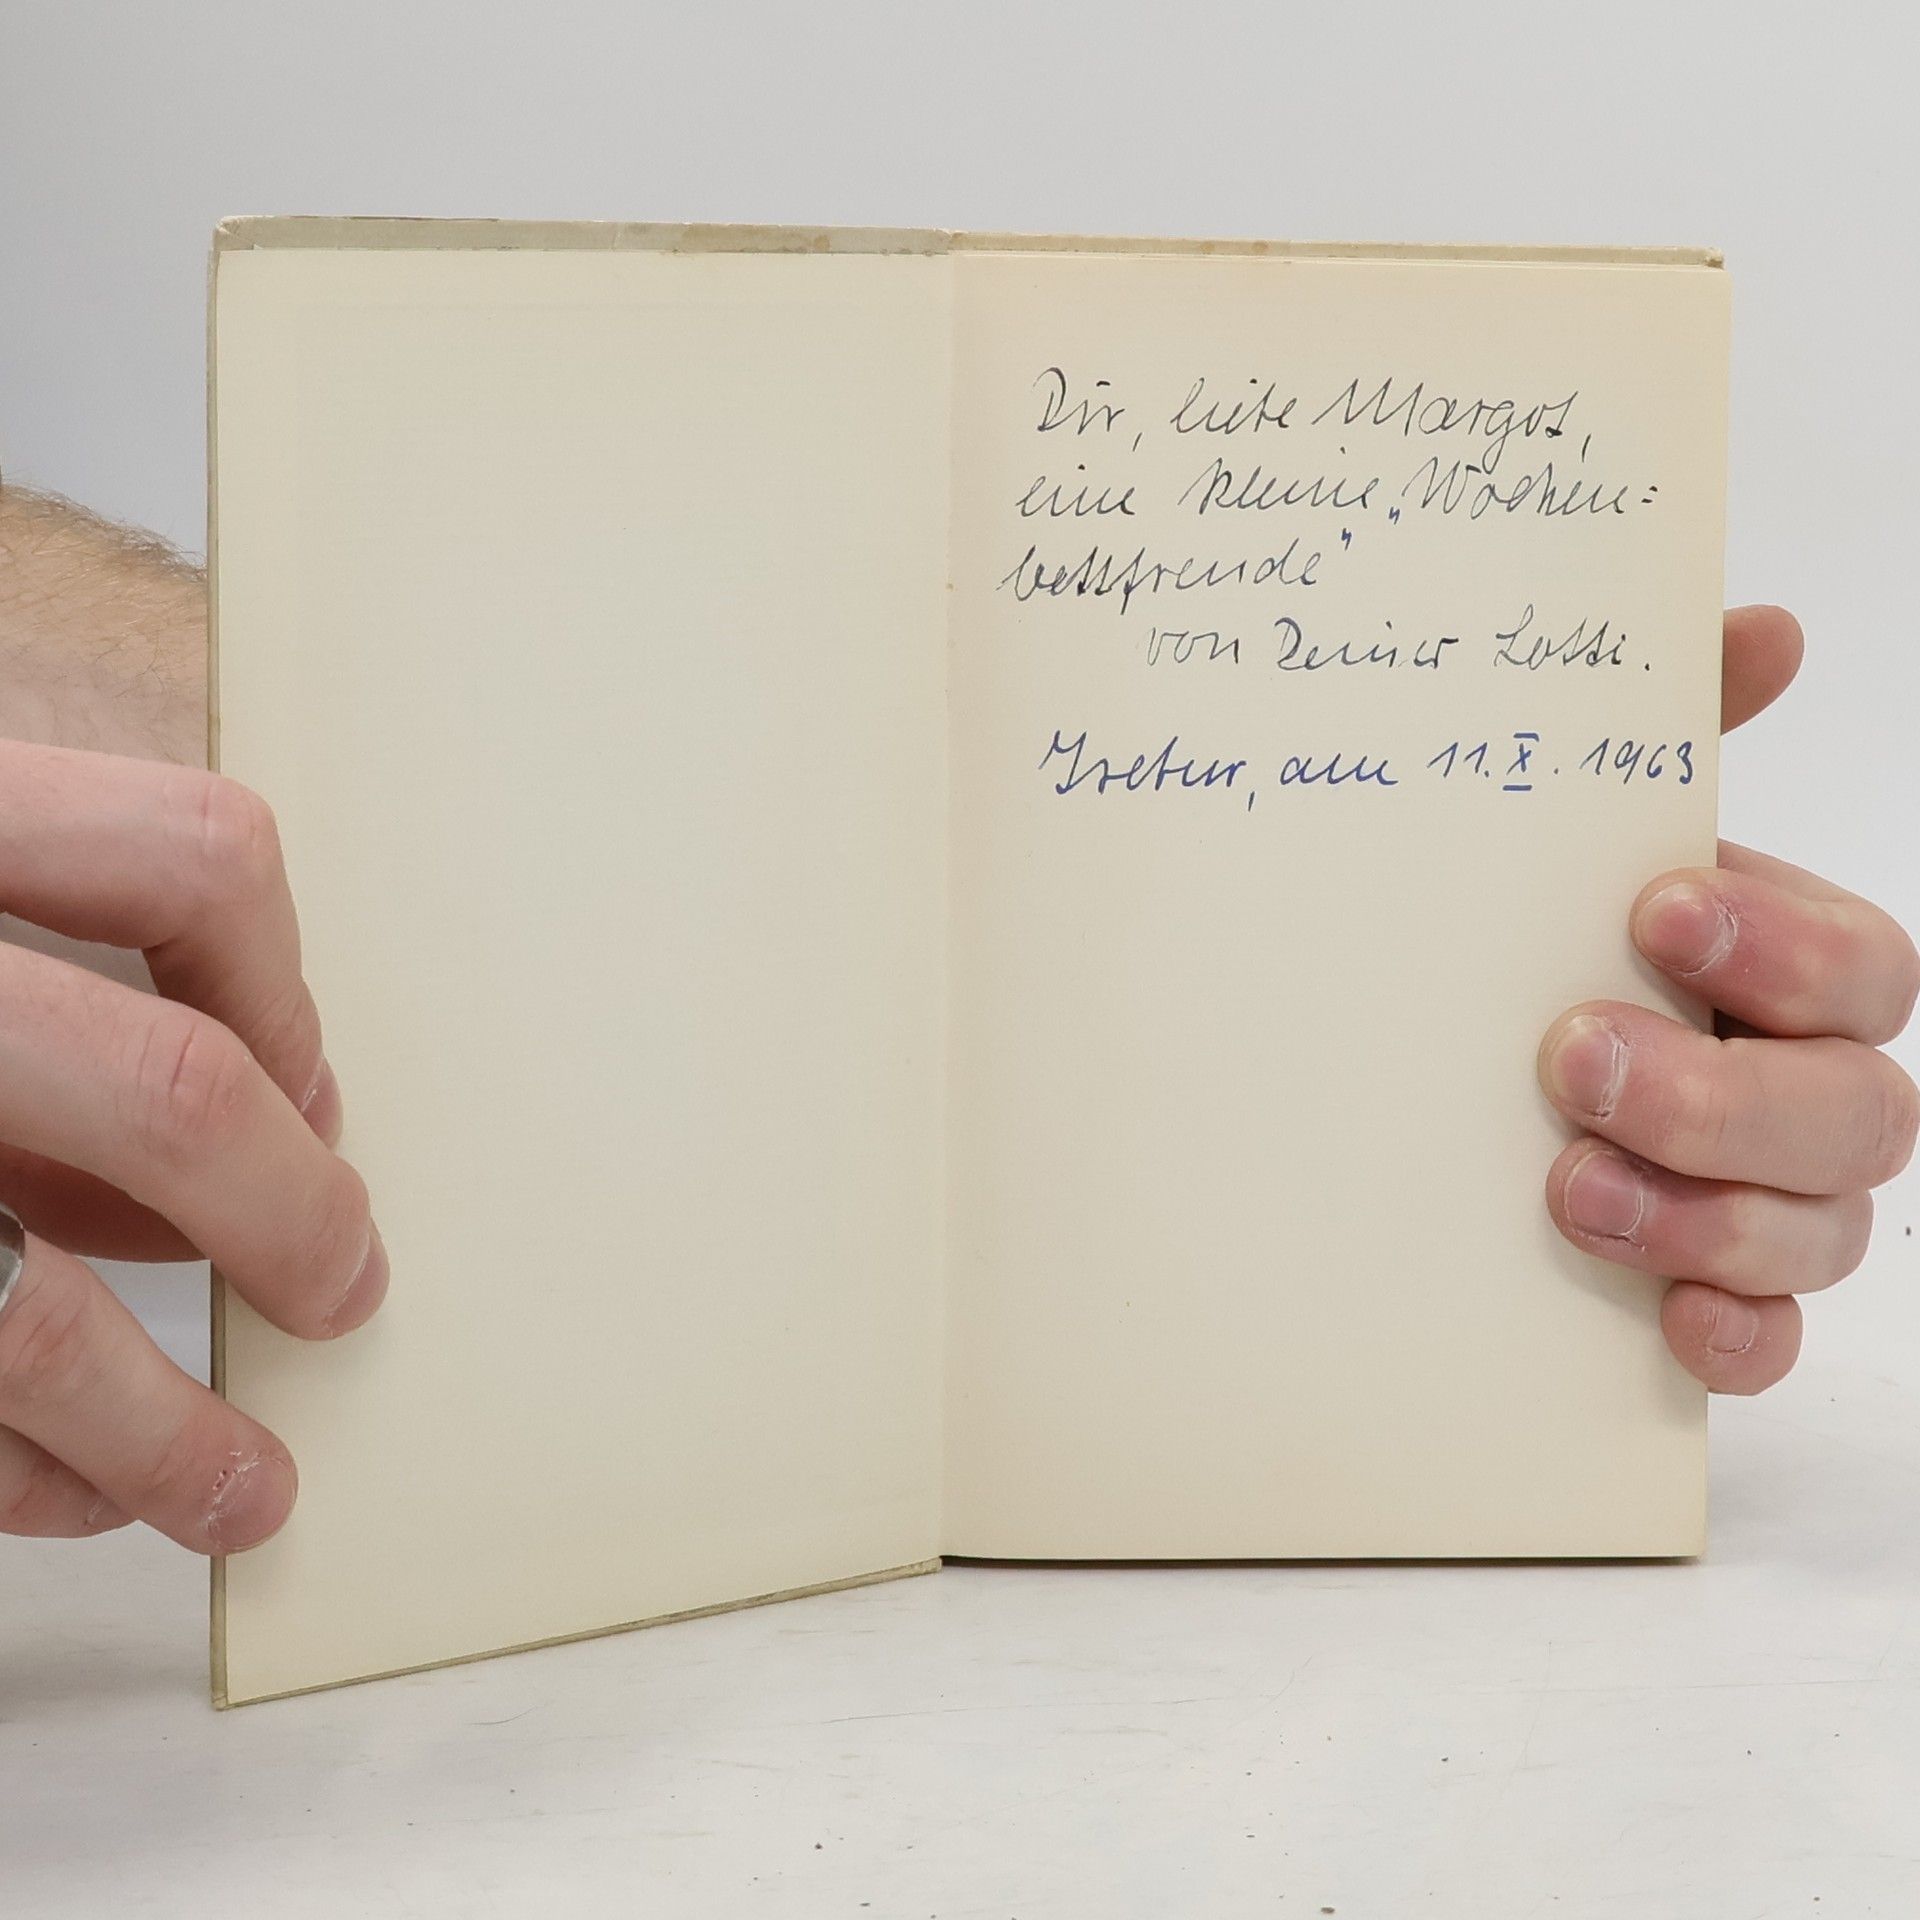 Dir, liebe Margot,
eine kleine „Wochen=
bettfreude"
von Deiner Lotti.
am 11. X. 1963